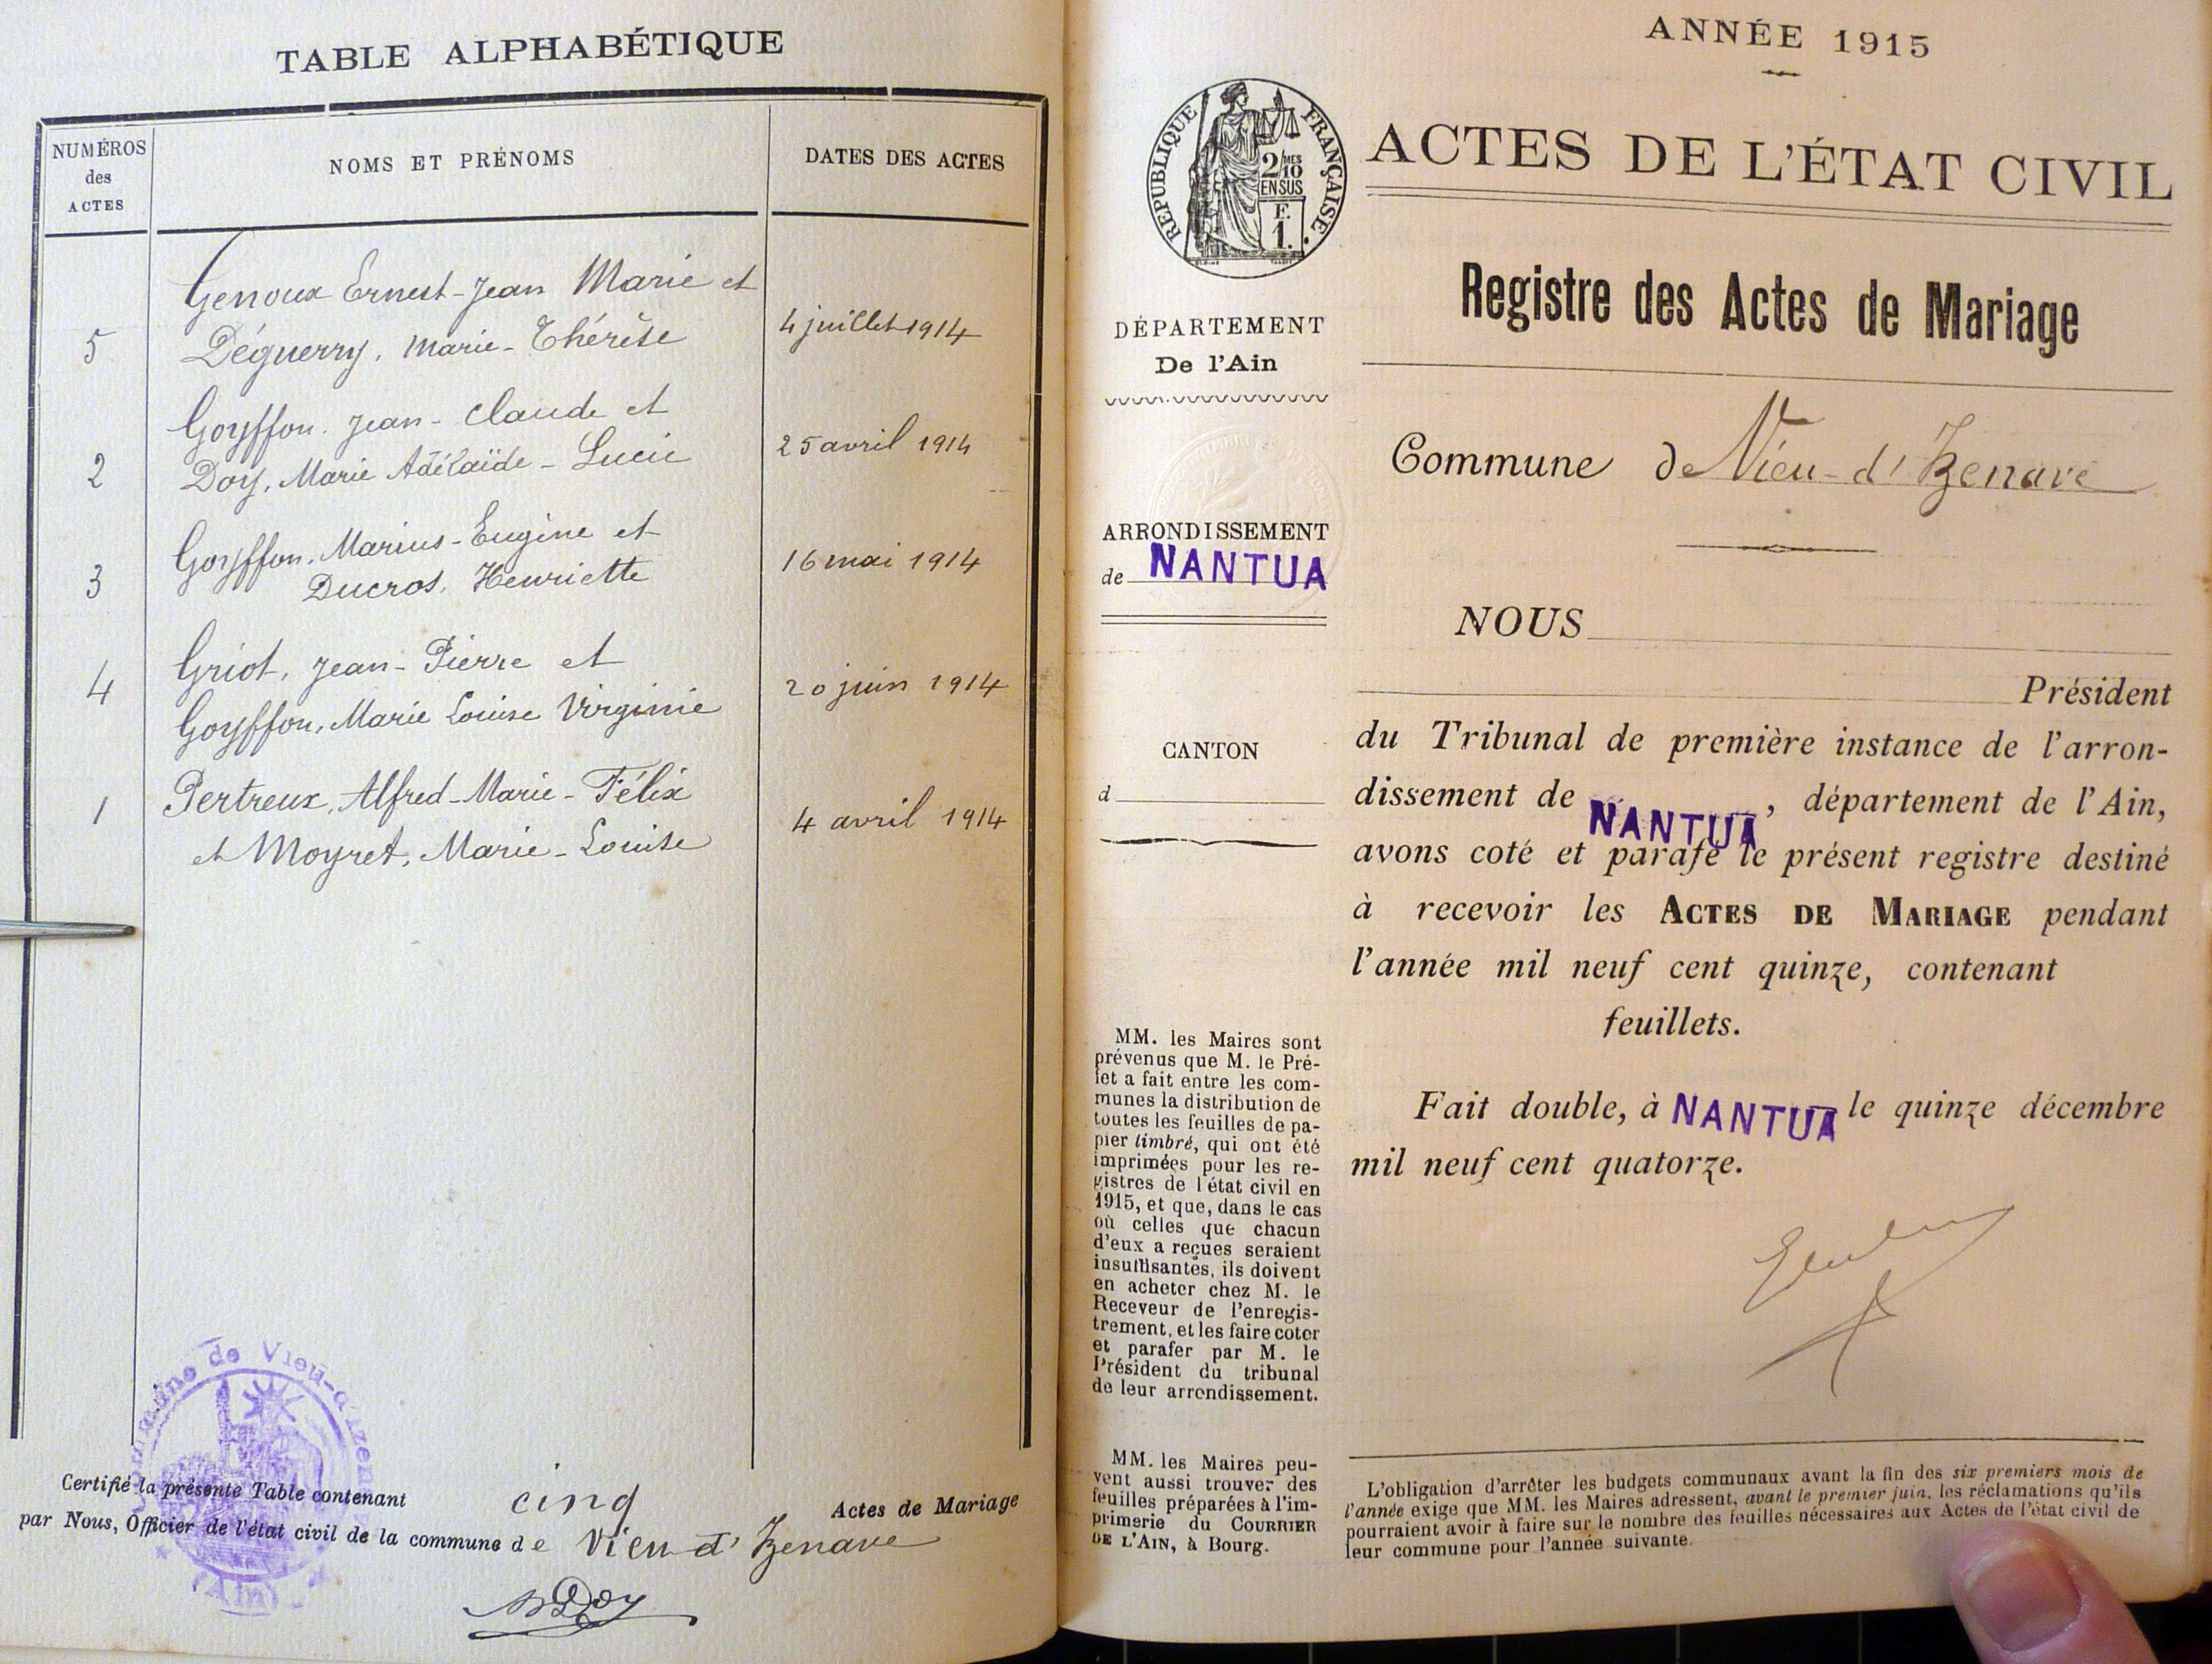 TABLE ALPHABÉTIQUE
NUMÉROS
des
ACTES
NOMS ET PRÉNOMS
DATES DES ACTES
Genoux Ernest-Jean Marie et
5 Déguerry, Marie-Thérèse 4 juillet 1914
Goyffon. Jean-Claude et
2 Doy, Marie Adélaïde-Lucie 25 avril 1914
Goyffon, Marius-Eugène et
3 Ducros, Henriette 16 mai 1914
Griot, Jean-Pierre et
4 Goyffon, Marie Louise Virginie 20 juin 1914
Pertreux, Alfred-Marie-Félix
1 et Moyret, Marie-Louise 4 avril 1914
Commune de Vieu-d'Izenave
(Ain)
Certifié la présente Table contenant cinq Actes de Mariage
par Nous, Officier de l'état civil de la commune de Vieu d'Izenave
Doy
ANNÉE 1915
RÉPUBLIQUE FRANÇAISE
2/10 MES
EN SUS
F.
1.
ACTES DE L'ÉTAT CIVIL
Registre des Actes de Mariage
DÉPARTEMENT
De l'Ain
Commune de Vieu-d'Izenave
ARRONDISSEMENT
de NANTUA
NOUS
Président
du Tribunal de première instance de l'arron-
dissement de NANTUA, département de l'Ain,
avons coté et parafé le présent registre destiné
à recevoir les ACTES DE MARIAGE pendant
l'année mil neuf cent quinze, contenant
feuillets.
Fait double, à NANTUA le quinze décembre
mil neuf cent quatorze.
CANTON
d
MM. les Maires sont
prévenus que M. le Pré-
fet a fait entre les com-
munes la distribution de
toutes les feuilles de pa-
pier timbré, qui ont été
imprimées pour les re-
gistres de l'état civil en
1915, et que, dans le cas
où celles que chacun
d'eux a reçues seraient
insuffisantes, ils doivent
en acheter chez M. le
Receveur de l'enregis-
trement, et les faire coter
et parafer par M. le
Président du tribunal
de leur arrondissement.
MM. les Maires peu-
vent aussi trouver des
feuilles préparées à l'im-
primerie du COURRIER
DE L'AIN, à Bourg.
L'obligation d'arrêter les budgets communaux avant la fin des six premiers mois de
l'année exige que MM. les Maires adressent, avant le premier juin, les réclamations qu'ils
pourraient avoir à faire sur le nombre des feuilles nécessaires aux Actes de l'état civil de
leur commune pour l'année suivante.